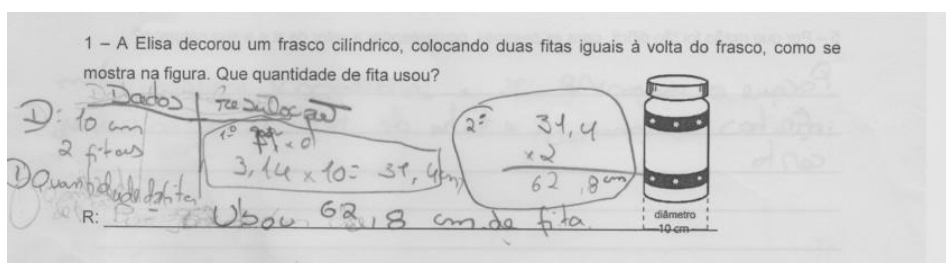 1 – A Elisa decorou um frasco cilíndrico, colocando duas fitas iguais à volta do frasco, como se
mostra na figura. Que quantidade de fita usou?
Dados
D: 10 cm
2 fitas
Quantidade de fita
1º
x d
3,14 x 10 = 31,4 cm
2º
31,4
x 2
62,8 cm
diâmetro
10 cm
R: Usou 62,8 cm de fita.